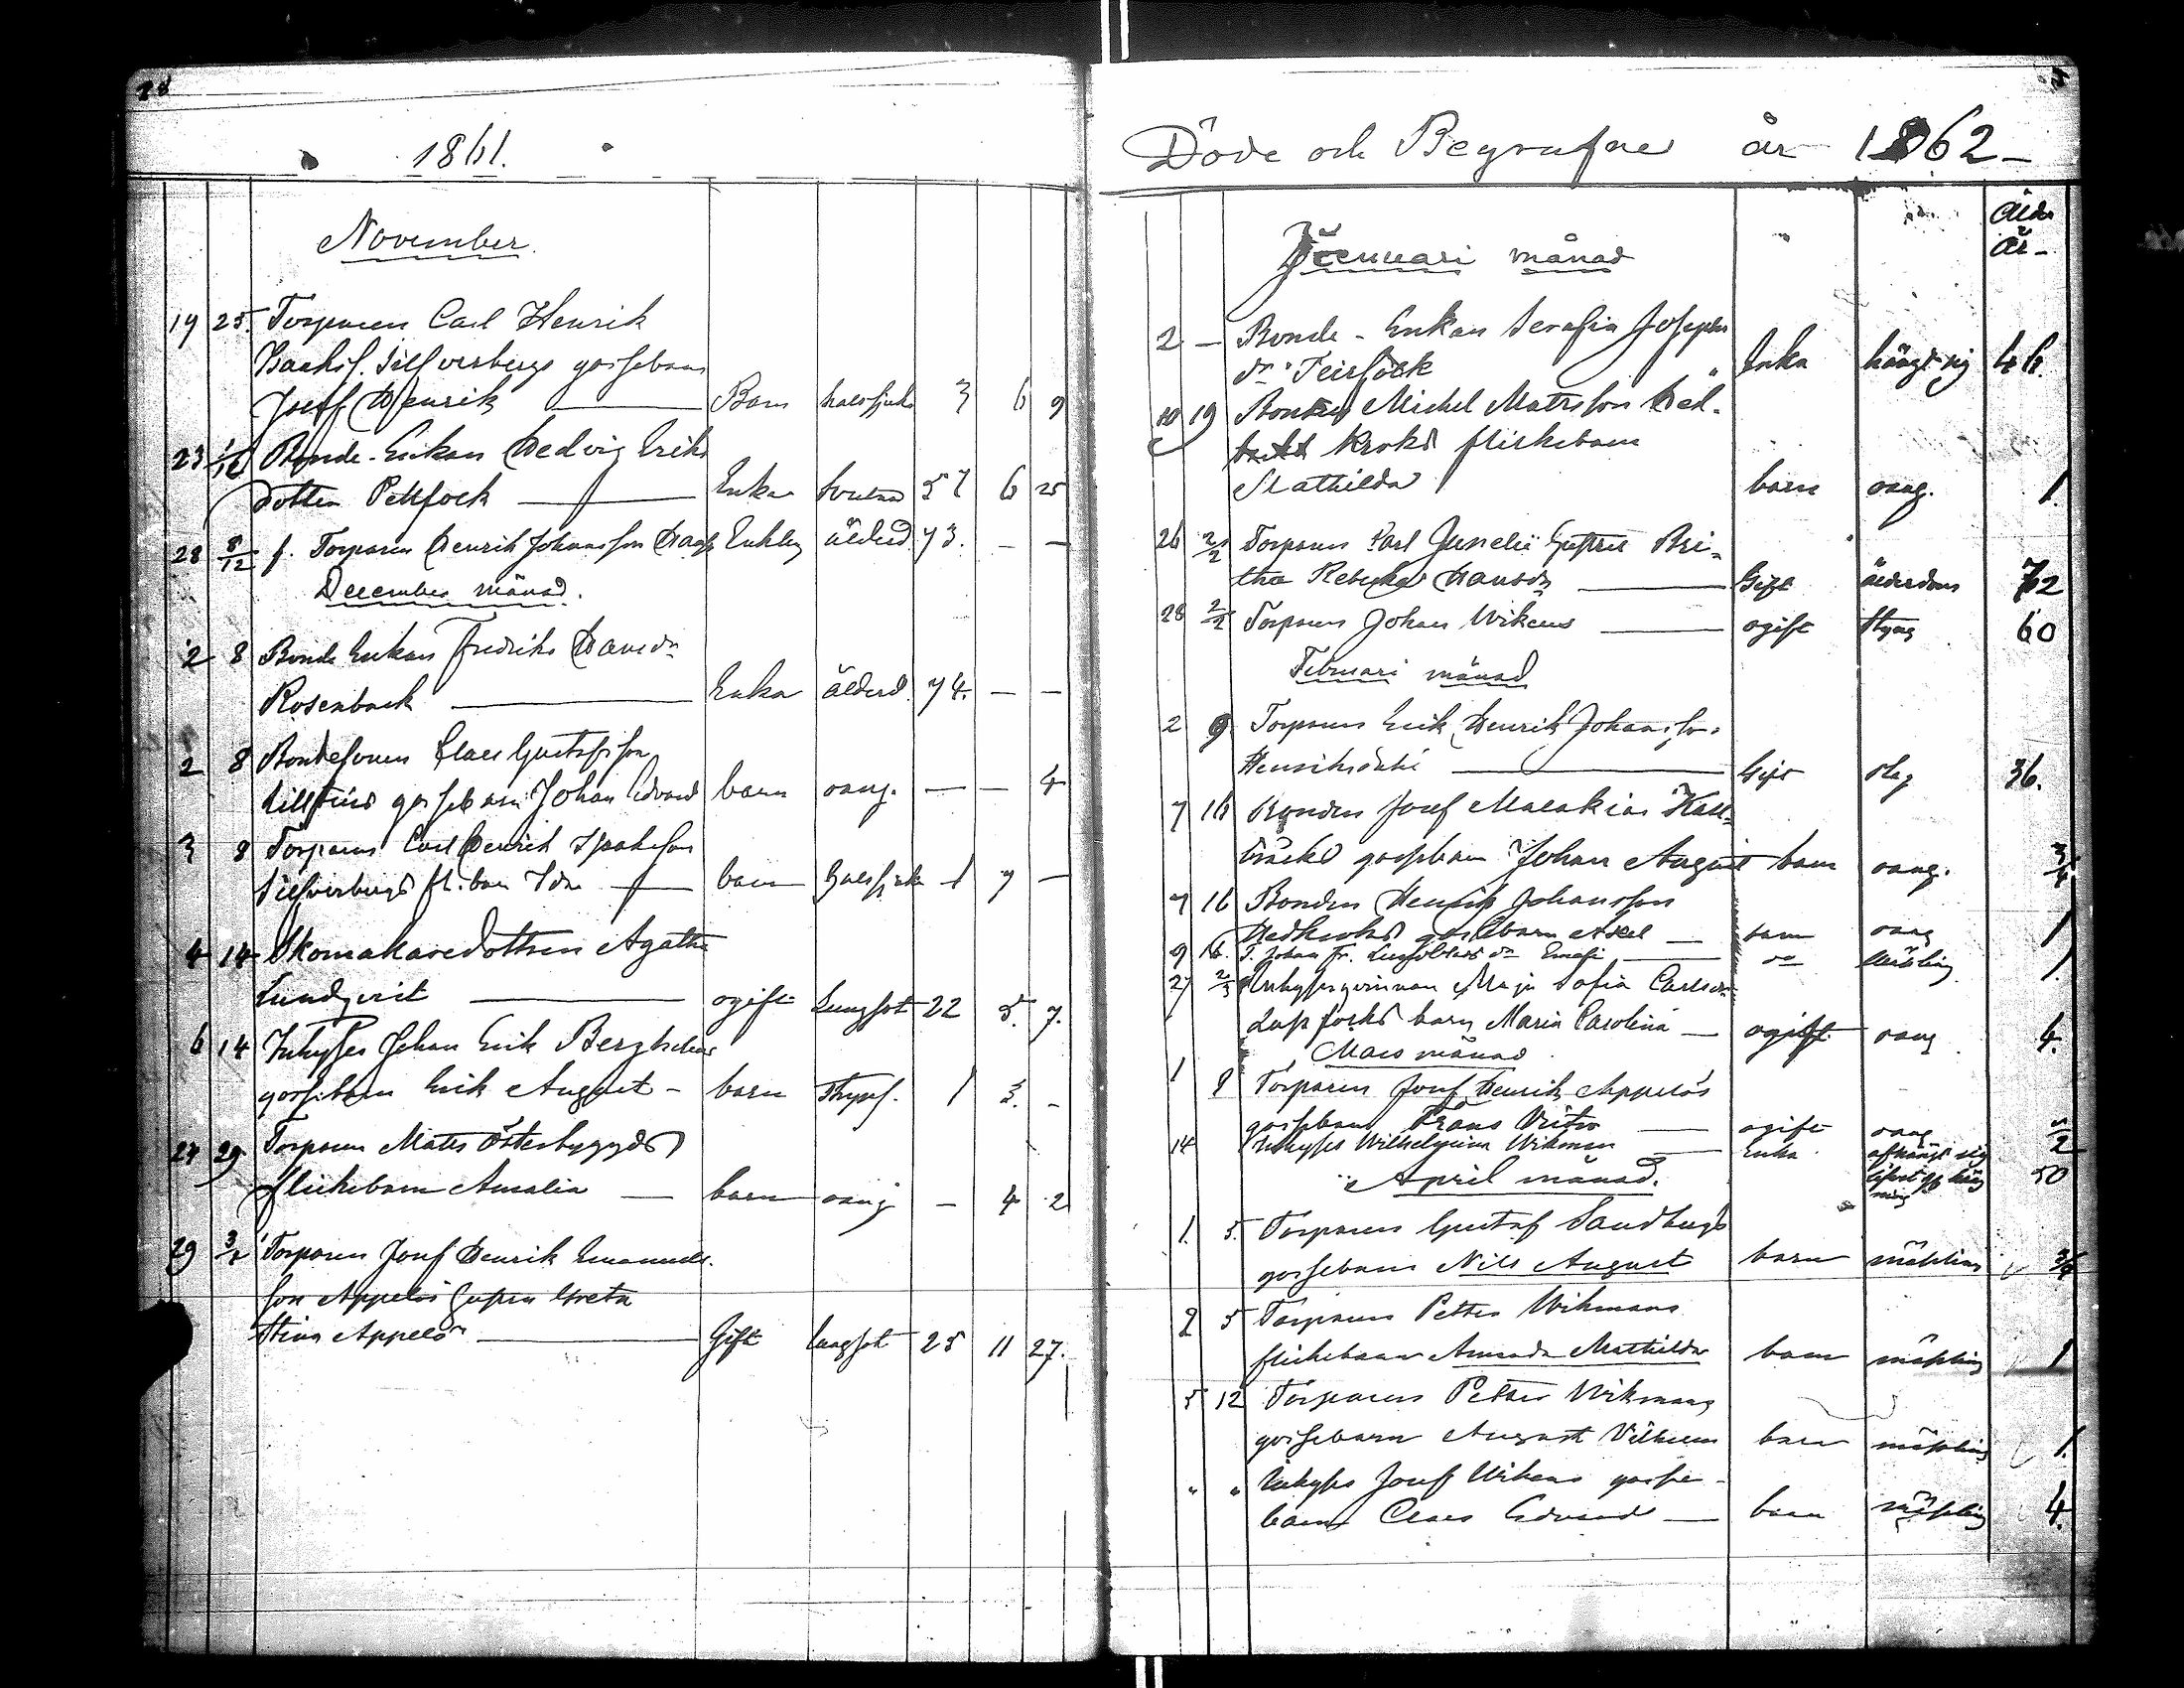 28
1861.
November
19 25. Torparen Carl Henrik
Isaksf. Silfverbergs gossebarn
Josef Henrik — Barn halssjuka 3 6 9
23 1/12 Bonde-Enkan Hedvig Eriks
dotter Pellfock — Enka 57 6 25
28 8/12 f. Torparen Henrik Johansson Haga Enkling ålderd. 73. — —
December månad.
2 8 Bonde Enkan Fredrika Hansdr
Rosenback — Enka ålderd. 74. — —
2 8 Bondesonen Claes Gustafsson
gossebarn Johan Edvard barn oang. — — 4
3 8 Torparens Carl Henrik Isaksson
Silfverbergs fl. barn Ida — barn Halssjuka 1 7 —
4 14 Skomakaredottren Agatha
Lundqvist — ogift Lungsot 22 5. 7.
6 14 Inhyses Johan Erik Berg
gossebarn Erik August — barn Strypsj. 1 3. -
24 29 Torparen Matts Österbyggds
flickebarn Amalia — barn oang — 4 2
29 3/1 Torparen Josef Henrik Emanuels
son Appelös hustru Greta
Stina Appelö — Gift lungsot 25 11 27.
Döde och Begrafne år 1862 —
Ålder
år —
Januari månad
2 — Bonde-Enkan Serafia Josephs
dr Teirfock Enka hängt sig 46.
10 19 Bonden Michel Mattsson Hed-
Kroks flickebarn
Mathilda barn oang. 1.
26 2/2 Torparen Carl Junelii hustru Bri-
tha Rebecka Hansdr — Gift ålderdom 72
28 2/2 Torparen Johan Wikens — ogift Styng 60
Februari månad
2 9 Torparen Erik Henrik Johansson
— Gift 36.
7 16 Bonden Josef Malakias Kall-
träsks gossebarn Johan August barn oang. 3/4
7 16 Bonden Henrik Johansson
Hedkroks gossebarn Axel — barn oang 1
9 16. T. Johan Fr. dr — do Mässling 1.
27 2/3 Inhysesqvinnan Maja Sofia Carlsdr
barn Maria Carolina — ogift oang 4.
Mars månad
1 9 Torparen Josef Henrik Appelös
gossebarn Frans Victor — ogift oang 1/2
14 Inhyses Wilhelmina Wikman — Enka afhängt sig
lifvet 50
April månad.
1. 5. Torparen Gustaf Sandbergs
gossebarn Nils August barn mässling 3/4
2 5 Torparens Petter Wikmans
flickebarn Amanda Mathilda barn mässling 1
5 12 Torparens Petter Wikmans
gossebarn August Vilhelm barn mässling 1.
" " Inhyses Josef Wikens gosse-
barn Claes Edvard — barn mässling 4.